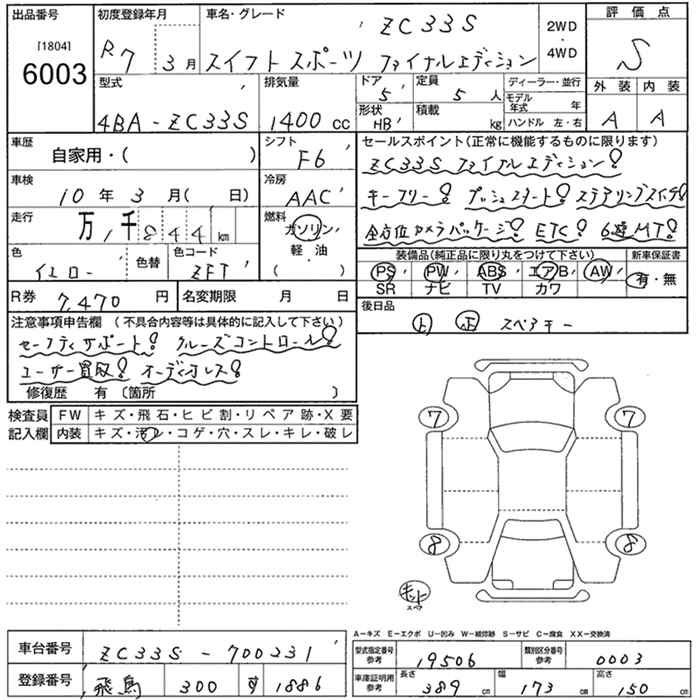 出品番号 初度登録年月 車名・グレード ZC33S 2WD・4WD 評価点
[1804] 6003 R7 3月 スイフト スポーツ ファイナルエディション S
型式 排気量 ドア 定員 ディーラー・並行 外装 内装
4BA-ZC33S 1400 cc 5 5 人 モデル年式 年 A A
形状 HB 積載 kg ハンドル 左・右
車歴 シフト セールスポイント(正常に機能するものに限ります)
自家用・( ) F6 ZC33S ファイナルエディション!
車検 冷房 キーフリー! プッシュスタート! ステアリングスイッチ!
10年 3月( 日) AAC 全方位カメラパッケージ! ETC! 6速MT!
走行 万 1千 844 km 燃料 ガソリン・軽・油 ( )
装備品(純正品に限り丸をつけて下さい) 新車保証書
色 色替 色コード PS PW ABS エアB AW 有・無
イエロー ZFT SR ナビ TV カワ
R券 7,470 円 名変期限 月 日 後日品
上 正 スペアキー
注意事項申告欄 (不具合内容等は具体的に記入して下さい)
セーフティサポート! クルーズコントロール!
ユーザー買取! オーディオレス!
修復歴 有 〔箇所 〕
検査員 FW キズ・飛石・ヒビ割・リペア跡・X要
記入欄 内装 キズ・汚レ・コゲ・穴・スレ・キレ・破レ
7 7
8 8
キット
スペア
A－キズ E－エクボ U－凹み W－補修跡 S－サビ C－腐食 XX－交換済
車台番号 ZC33S-700231 型式指定番号 参考 19506 類別区分番号 参考 0003
登録番号 飛鳥 300 す 1886 車庫証明用 参考 長さ 389 cm 幅 173 cm 高さ 150 cm